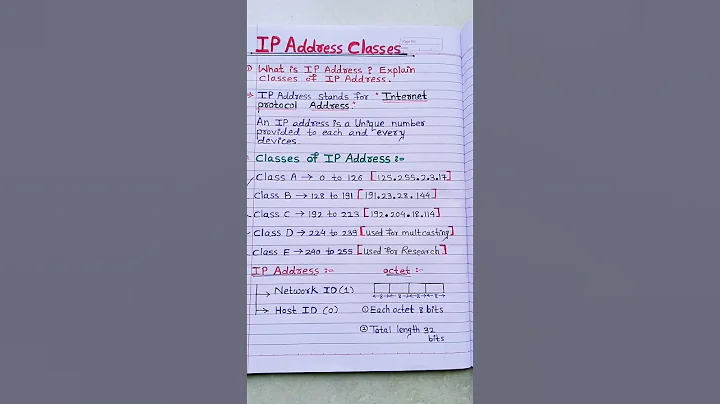 IP Address Classes
What is IP Address? Explain
Classes of IP Address.
IP Address stands for "Internet
protocol Address."
An IP address is a Unique number
provided to each and every
devices.
Classes of IP Address :-
Class A → 0 to 126 [125.255.2.3.17]
Class B → 128 to 191 [191.23.28.144]
Class C → 192 to 223 [192.204.18.114]
Class D → 224 to 239 [used for multcasting]
Class E → 240 to 255 [used for Research]
IP Address :- octet :-
→ Network ID (1)
←8→←8→←8→←8→
→ Host ID (0) ① Each octet 8 bits
② Total length 32
bits